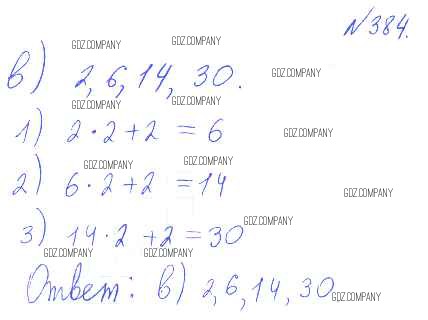 №384.
GDZ.COMPANY GDZ.COMPANY
в) 2, 6, 14, 30. GDZ.COMPANY
GDZ.COMPANY GDZ.COMPANY
1) 2·2+2=6 GDZ.COMPANY
GDZ.COMPANY GDZ.COMPANY
2) 6·2+2=14 GDZ.COMPANY
3) 14·2+2=30 GDZ.COMPANY
GDZ.COMPANY GDZ.COMPANY
Ответ: в) 2, 6, 14, 30 GDZ.COMPANY